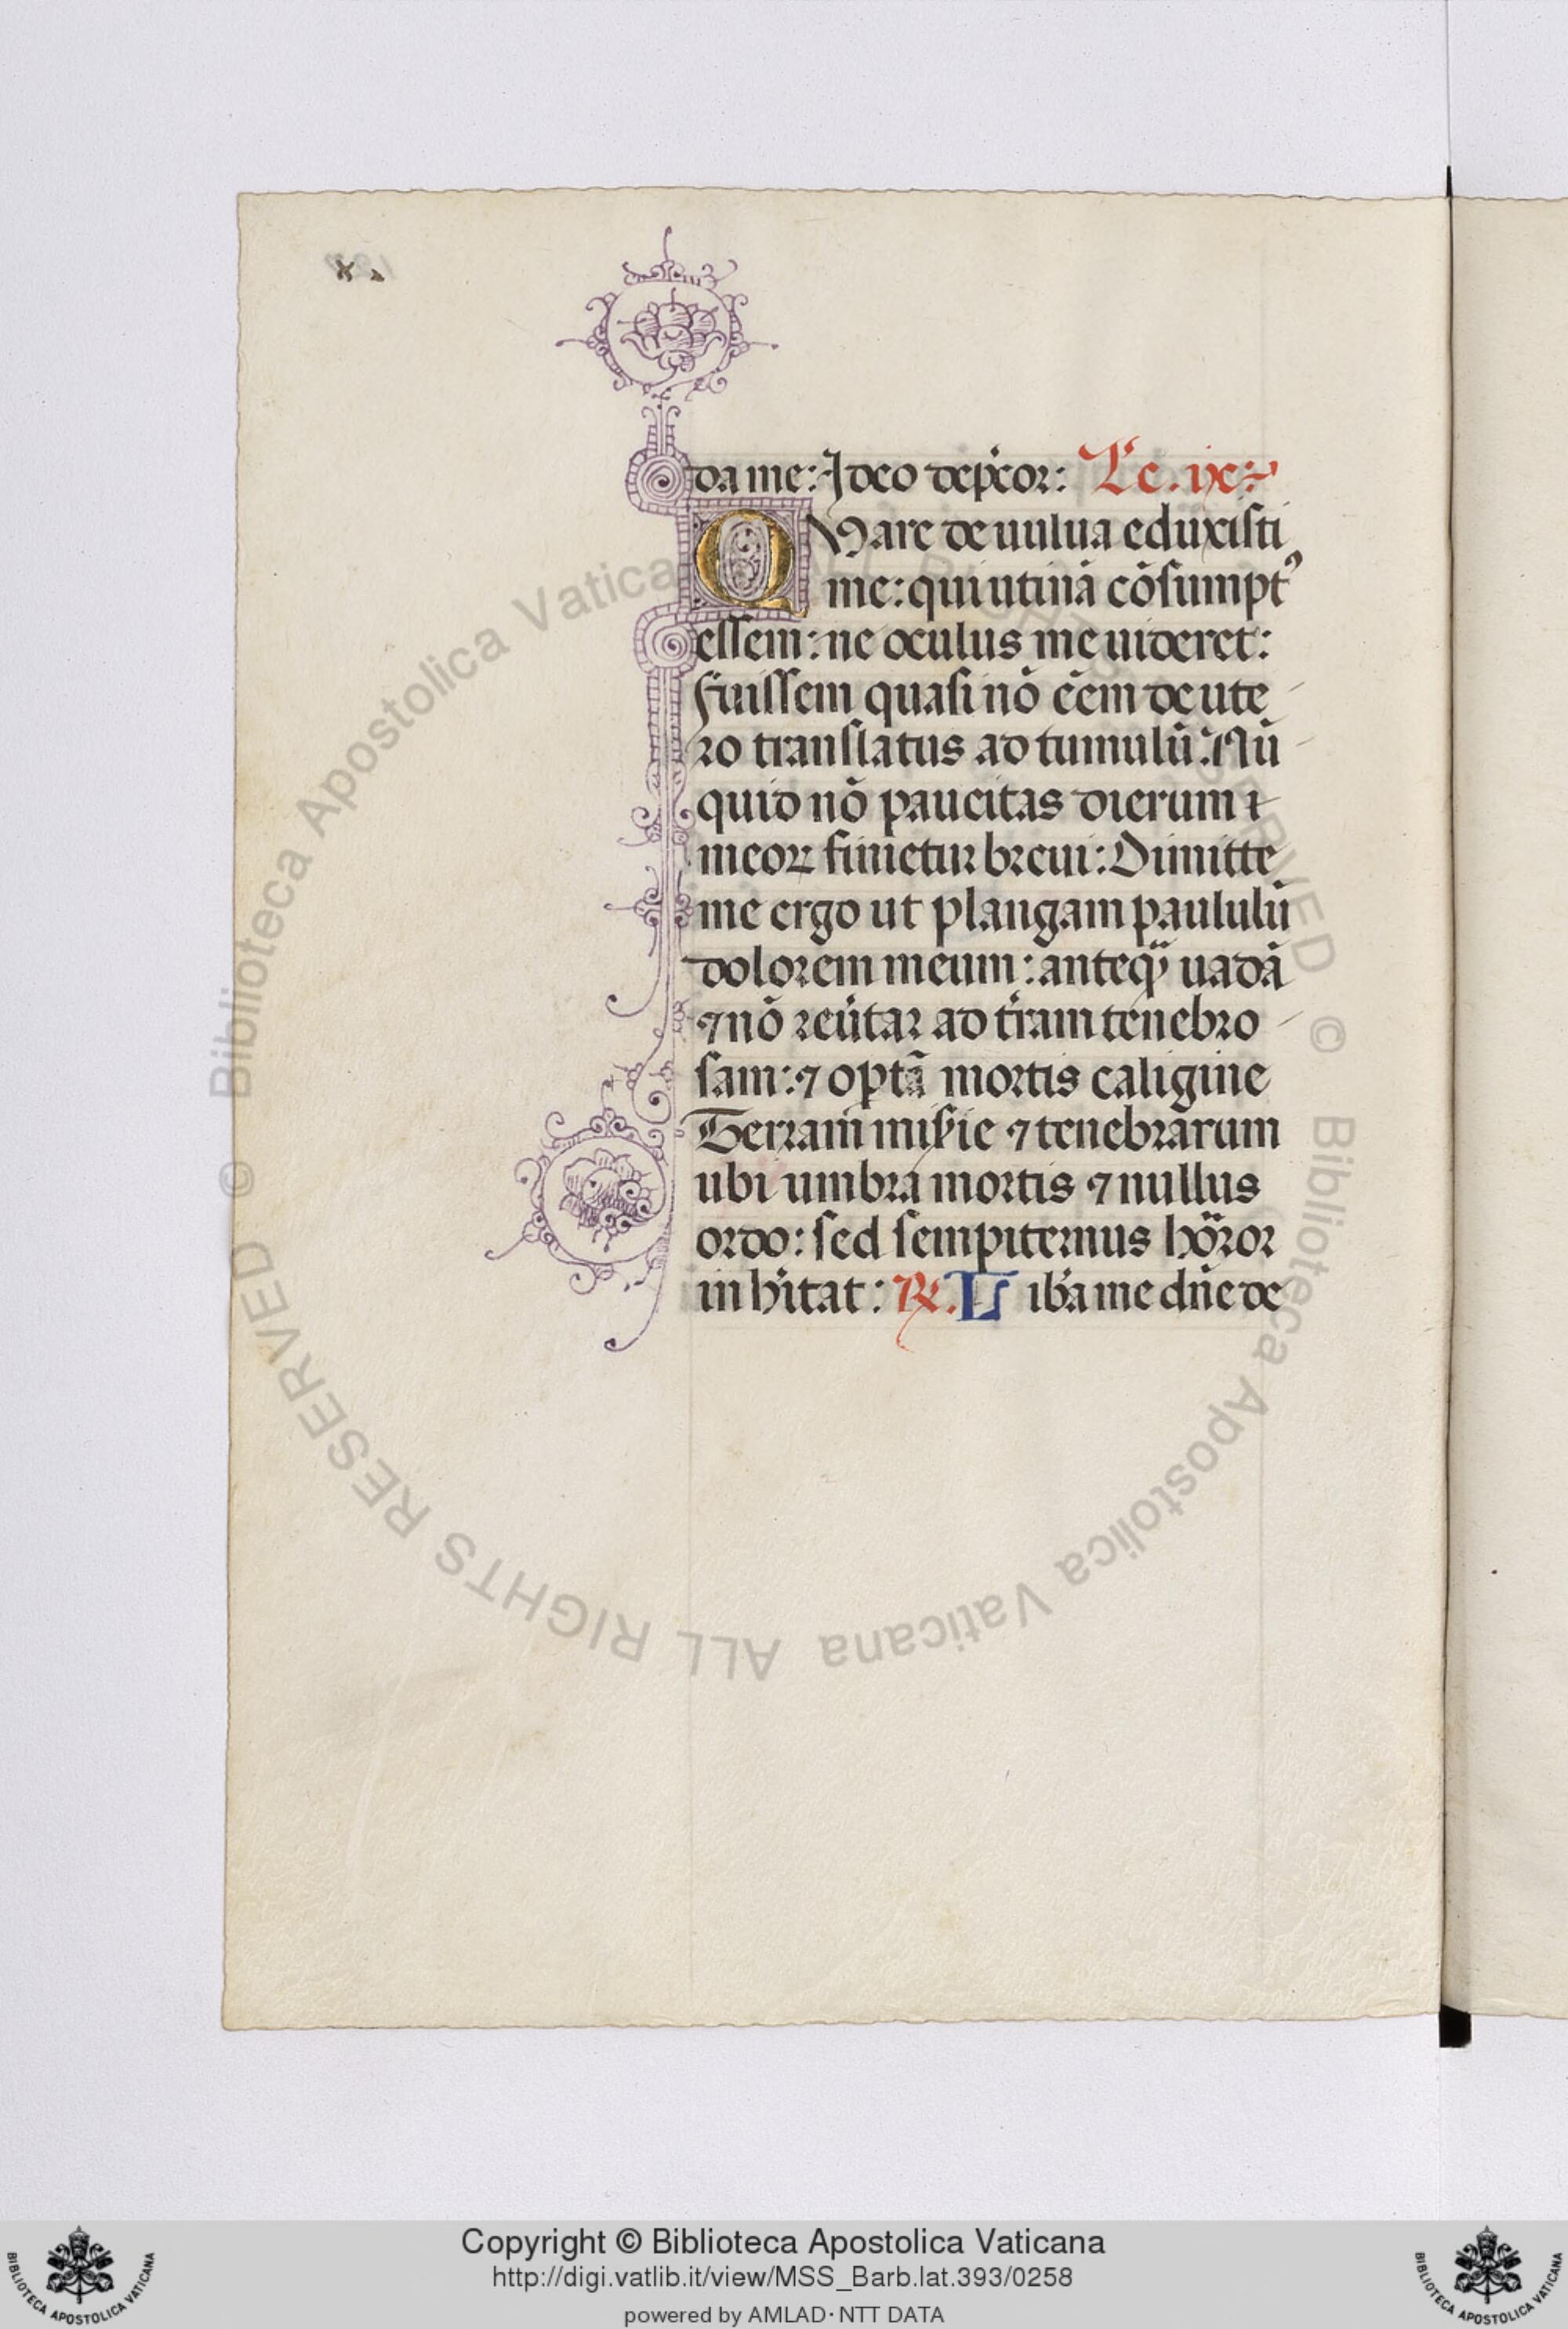 da me: Ideo dep̃cor: Le. ix:
Quare de uulua eduxisti
me: qui utinã cõsumptꝰ
essem: ne oculus me uideret:
fuissem quasi nõ eẽm de ute
ro translatus ad tumulũ: Nũ
quid nõ paucitas dierum
meoꝝ finietur breui: Dimitte
me ergo ut plangam paululũ
dolorem meum: anteqᷓ uadã
⁊ nõ reũtar ad t̃ram tenebro
sam: ⁊ optã mortis caligine
Terram mis̃ie ⁊ tenebrarum
ubi umbra mortis ⁊ nullus
ordo: sed sempiternus horror
inh̃itat: ℟. Lib̃a me dñe de
© Biblioteca Apostolica Vaticana ALL RIGHTS RESERVED © Biblioteca Apostolica Vaticana ALL RIGHTS RESERVED
Copyright © Biblioteca Apostolica Vaticana
http://digi.vatlib.it/view/MSS_Barb.lat.393/0258
powered by AMLAD·NTT DATA
BIBLIOTECA APOSTOLICA VATICANA
BIBLIOTECA APOSTOLICA VATICANA